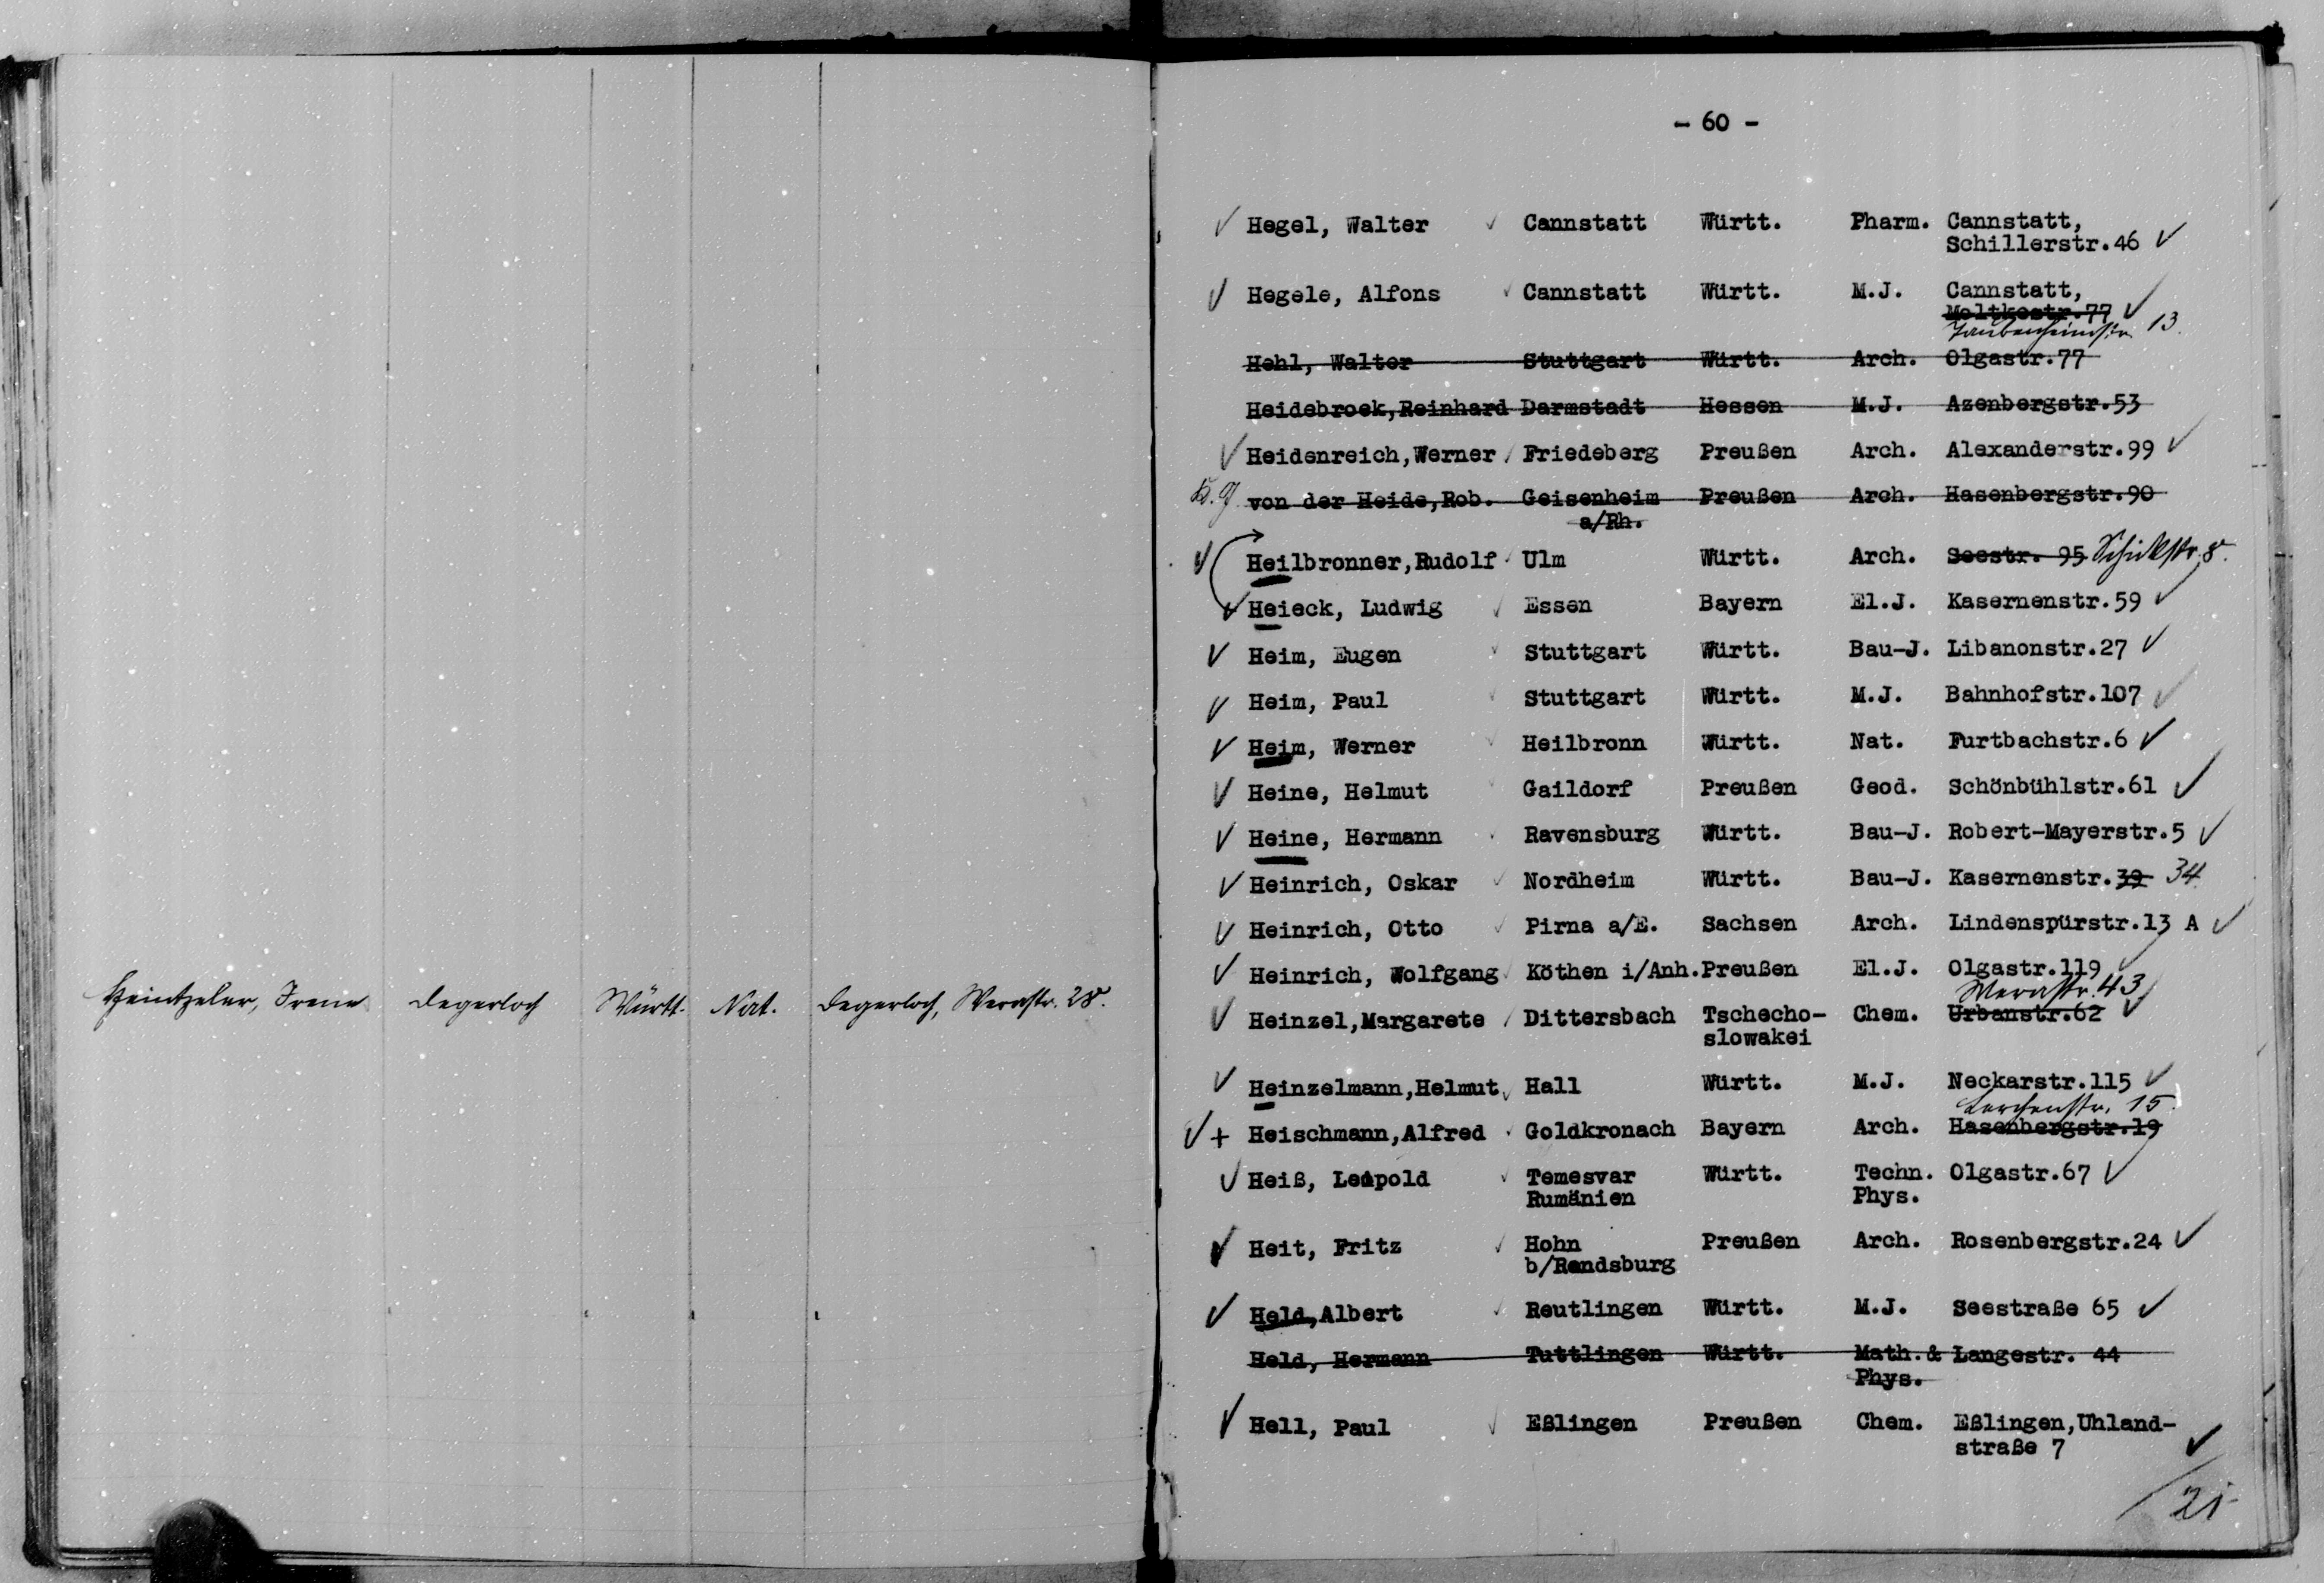 Heintzeler, Irene Degerloch Württ. Nat. Degerloch, Werastr. 28.
- 60 -
Hegel, Walter Cannstatt Württ. Pharm. Cannstatt,
Schillerstr.46
Hegele, Alfons Cannstatt Württ. M.J. Cannstatt,
Moltkestr.77
Taubenheimstr. 13.
Hehl, Walter Stuttgart Württ. Arch. Olgastr.77
Heidebroek,Reinhard Darmstadt Hessen M.J. Azenbergstr.53
Heidenreich,Werner Friedeberg Preußen Arch. Alexanderstr.99
von der Heide,Rob. Geisenheim Preußen Arch. Hasenbergstr.90
a/Rh.
Heilbronner,Rudolf Ulm Württ. Arch. Seestr. 95 Schickstr. 8.
Heieck, Ludwig Essen Bayern El.J. Kasernenstr.59
Heim, Eugen Stuttgart Württ. Bau-J. Libanonstr.27
Heim, Paul Stuttgart Württ. M.J. Bahnhofstr.107
Heim, Werner Heilbronn Württ. Nat. Furtbachstr.6
Heine, Helmut Gaildorf Preußen Geod. Schönbühlstr.61
Heine, Hermann Ravensburg Württ. Bau-J. Robert-Mayerstr.5
Heinrich, Oskar Nordheim Württ. Bau-J. Kasernenstr.39 34
Heinrich, Otto Pirna a/E. Sachsen Arch. Lindenspürstr.13 A
Heinrich, Wolfgang Köthen i/Anh. Preußen El.J. Olgastr.119
Werastr. 43
Heinzel,Margarete Dittersbach Tschecho- Chem. Urbanstr.62
slowakei
Heinzelmann,Helmut Hall Württ. M.J. Neckarstr.115
Lerchenstr. 15.
+ Heischmann,Alfred Goldkronach Bayern Arch. Hasenbergstr.19
Heiß, Leopold Temesvar Württ. Techn. Olgastr.67
Rumänien Phys.
Heit, Fritz Hohn Preußen Arch. Rosenbergstr.24
b/Rendsburg
Held,Albert Reutlingen Württ. M.J. Seestraße 65
Held, Hermann Tuttlingen Württ. Math.& Langestr. 44
Phys.
Hell, Paul Eßlingen Preußen Chem. Eßlingen,Uhland-
straße 7
21